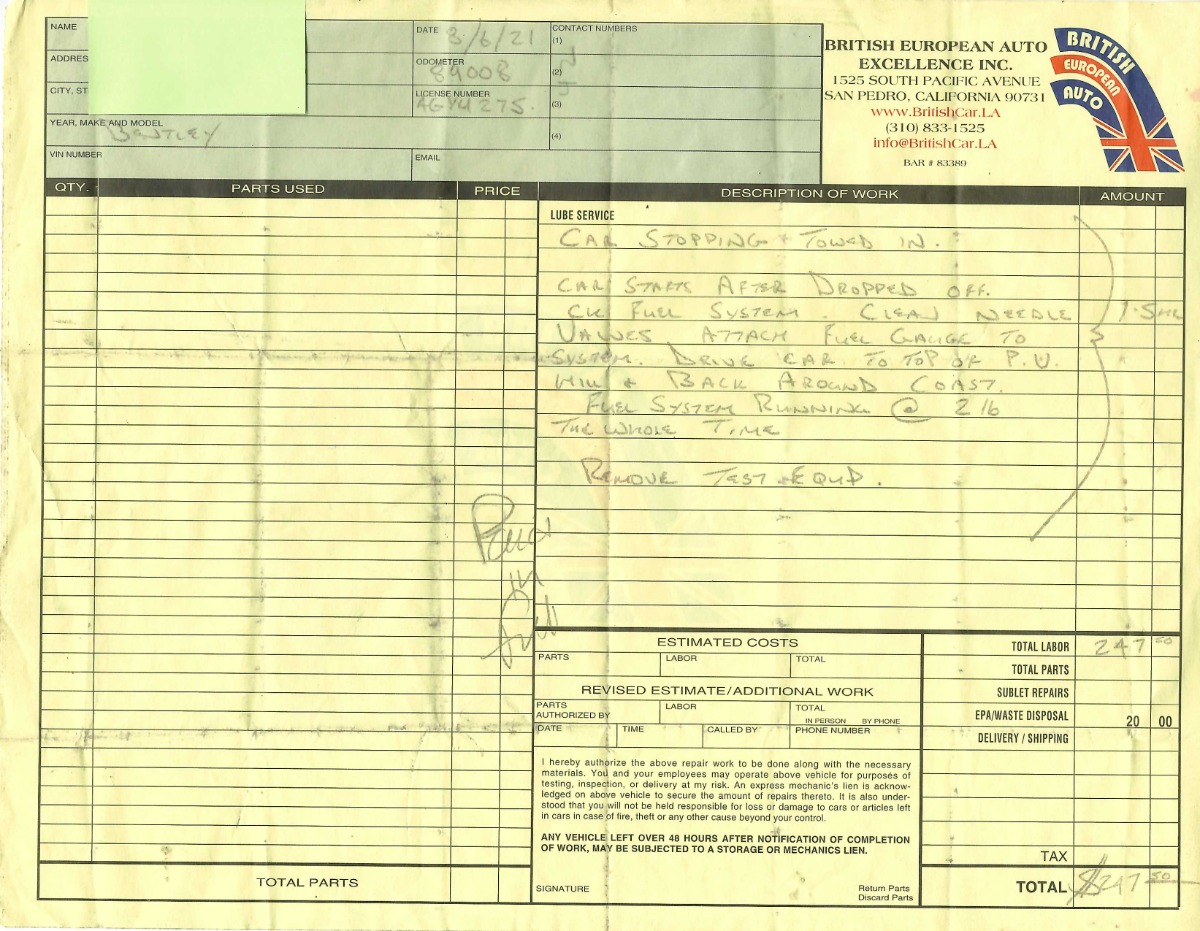 NAME
DATE 3/6/21
CONTACT NUMBERS
(1)
ADDRES
ODOMETER
89008
(2)
CITY, ST
LICENSE NUMBER
(3)
YEAR, MAKE AND MODEL
BENTLEY
(4)
VIN NUMBER
EMAIL
BRITISH EUROPEAN AUTO
EXCELLENCE INC.
1525 SOUTH PACIFIC AVENUE
SAN PEDRO, CALIFORNIA 90731
www.BritishCar.LA
(310) 833-1525
info@BritishCar.LA
BAR # 83389
BRITISH
EUROPEAN
AUTO
QTY. PARTS USED PRICE DESCRIPTION OF WORK AMOUNT
LUBE SERVICE
CAR STOPPING + TOWED IN.
CAR STARTS AFTER DROPPED OFF.
CK FUEL SYSTEM. CLEAN NEEDLE 1.5HR
VALVES ATTACH FUEL GAUGE TO
SYSTEM. DRIVE CAR TO TOP OF P.V.
HILL + BACK AROUND COAST.
FUEL SYSTEM RUNNING @ 2 lb
THE WHOLE TIME
REMOVE TEST EQUP.
ESTIMATED COSTS
PARTS LABOR TOTAL
REVISED ESTIMATE/ADDITIONAL WORK
PARTS LABOR TOTAL
AUTHORIZED BY IN PERSON BY PHONE
DATE TIME CALLED BY PHONE NUMBER
I hereby authorize the above repair work to be done along with the necessary
materials. You and your employees may operate above vehicle for purposes of
testing, inspection, or delivery at my risk. An express mechanic's lien is acknow-
ledged on above vehicle to secure the amount of repairs thereto. It is also under-
stood that you will not be held responsible for loss or damage to cars or articles left
in cars in case of fire, theft or any other cause beyond your control.
ANY VEHICLE LEFT OVER 48 HOURS AFTER NOTIFICATION OF COMPLETION
OF WORK, MAY BE SUBJECTED TO A STORAGE OR MECHANICS LIEN.
SIGNATURE
Return Parts
Discard Parts
TOTAL LABOR 247 50
TOTAL PARTS
SUBLET REPAIRS
EPA/WASTE DISPOSAL 20 00
DELIVERY / SHIPPING
TAX
TOTAL $247 50
TOTAL PARTS